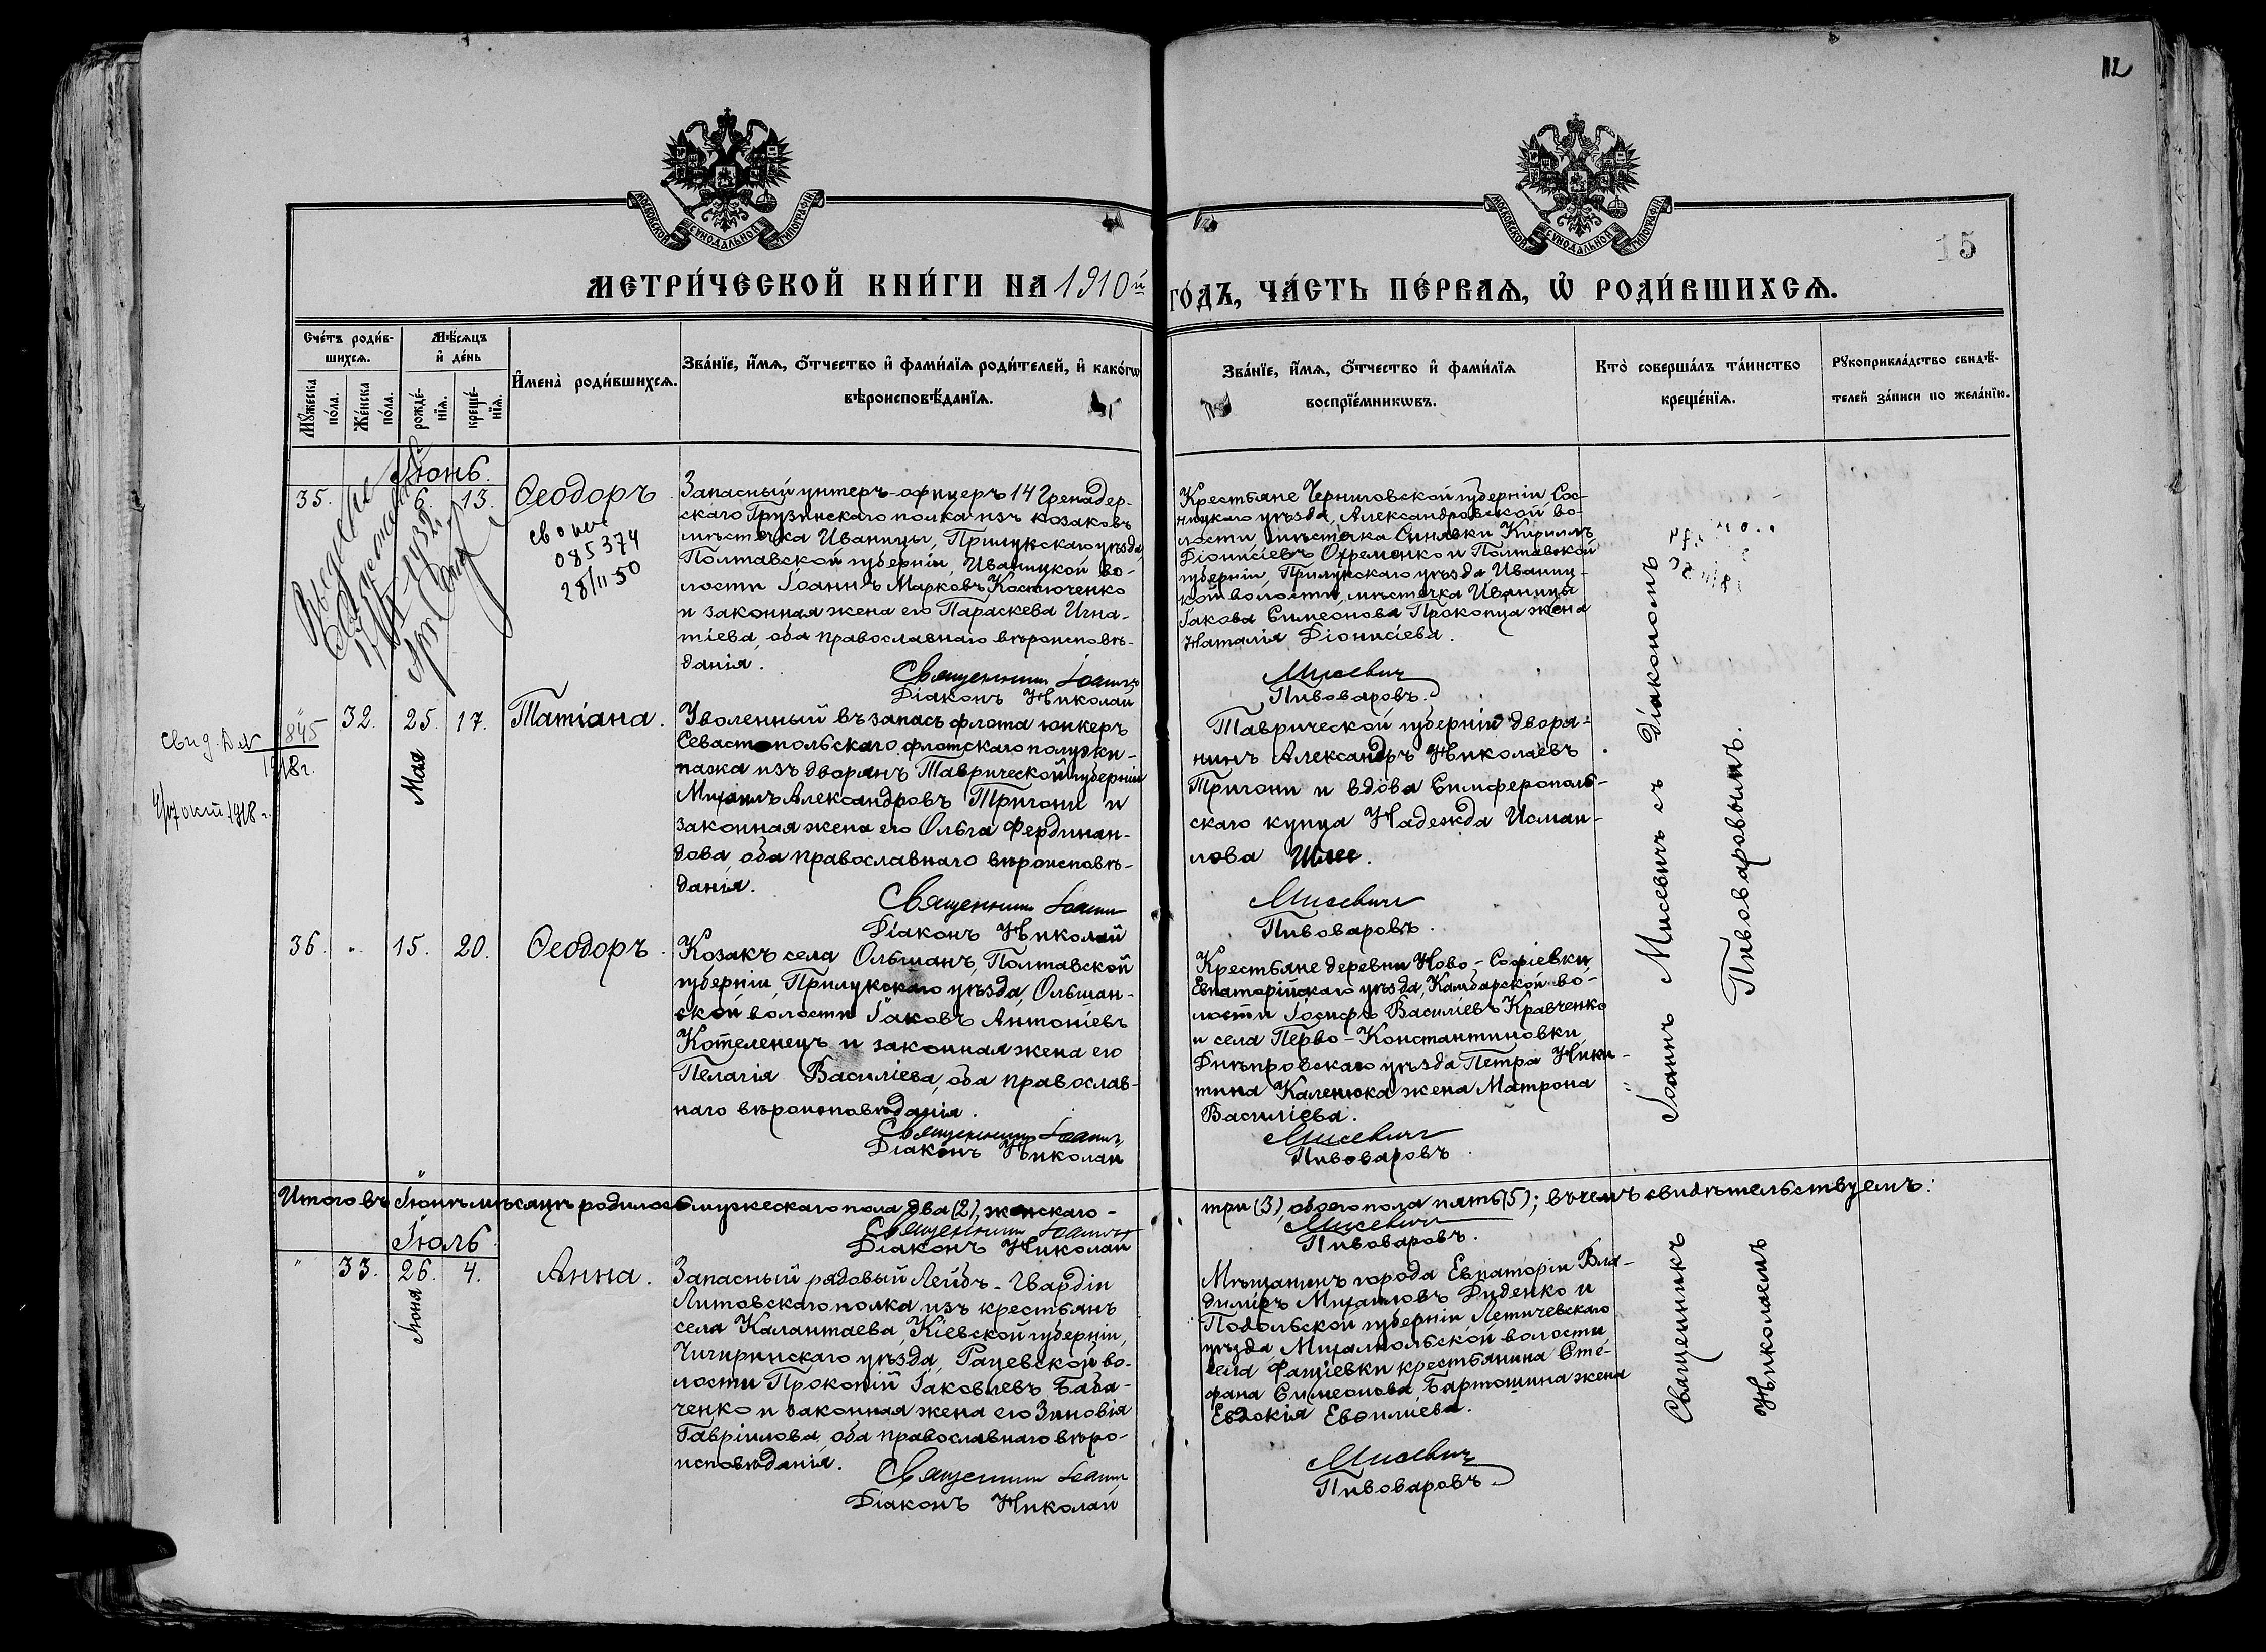 112
МОСКОВСКОЙ СѴНОДАЛЬНОЙ ТИПОГРАФІИ
МОСКОВСКОЙ СѴНОДАЛЬНОЙ ТИПОГРАФІИ
15
МЕТРИ́ЧЕСКОЙ КНИ́ГИ НА 1910й
ГО́ДЪ, ЧА́СТЬ ПЕ́РВАѦ, Ѡ҆ РОДИ́ВШИХСѦ.
Сче́тъ роди́в-
шихсѧ.
Мѣ́сѧцъ
и҆ де́нь
Мꙋ́жеска
по́ла.
Же́нска
по́ла.
рожде́-
нїѧ.
креще́-
нїѧ.
И҆мена̀ роди́вшихсѧ.
Зва́нїе, и҆́мѧ, ѻ҆́тчество и҆ фами́лїѧ роди́телей, и҆ како́гѡ
вѣроисповѣ́данїѧ.
Зва́нїе, и҆́мѧ, ѻ҆́тчество и҆ фами́лїѧ
воспрїе́мникѡвъ.
Кто̀ соверша́лъ та́инство
креще́нїѧ.
Рꙋкоприкла́дство свидѣ́-
телей за́писи по жела́нїю.
Іюнь.
35.
6
13.
Ѳеодоръ
085374
28/II-50
Запасный унтеръ-офицеръ 14 Гренадер-
скаго Грузинскаго полка изъ козаковъ
мѣстечка Иваницы, Прилукскаго уѣзда
Полтавской губерніи, Иваницкой во-
лости Іоаннъ Марковъ Костюченко
и законная жена его Параскева Игна-
тіева, оба православнаго вѣроисповѣ-
данія.
Священникъ Іоаннъ
Діаконъ Николай
Крестьяне Черниговской губерніи, Сос-
ницкаго уѣзда, Александровской во-
лости, мѣстечка Синявки Кириллъ
Діонисіевъ Охременко и Полтавской
губерніи, Прилукскаго уѣзда Иваниц-
кой волости, мѣстечка Иваницы
Іакова Симеонова Прокопца жена
Наталія Діонисіева.
Мисевичъ
Пивоваровъ.
свид. № 845
1918г.
4/17 окт 1918 г.
"
32.
25.
Мая
17.
Татіана.
Уволенный въ запасъ флота юнкеръ
Севастопольскаго флотскаго полуэки-
пажа изъ дворянъ Таврической губерніи
Михаилъ Александровъ Тригони и
законная жена его Ольга Фердинан-
дова, оба православнаго вѣроисповѣ-
данія.
Священникъ Іоаннъ
Діаконъ Николай
Таврической губерніи дворя-
нинъ Александръ Николаевъ
Тригони и вдова Симферополь-
скаго купца Надежда Исмаи-
лова Шлее.
Мисевичъ
Пивоваровъ.
36.
"
15.
20.
Ѳеодоръ.
Козакъ села Ольшанъ, Полтавской
губерніи, Прилукскаго уѣзда, Ольшан-
ской волости Іаковъ Антоніевъ
Котеленецъ и законная жена его
Пелагія Василіева, оба православ-
наго вѣроисповѣданія.
Священникъ Іоаннъ
Діаконъ Николай
Крестьяне деревни Ново-Софіевки,
Евпаторійскаго уѣзда, Камбарской во-
лости Іосифъ Василіевъ Кравченко
и села Перво-Константиновки,
Днѣпровскаго уѣзда Петра Ники-
тина Каленюка жена Матрона
Василіева.
Мисевичъ
Пивоваровъ.
Итого въ Іюнѣ мѣсяцѣ родилось мужескаго пола два (2), женскаго -
три (3), обоего пола пять (5); въ чемъ свидѣтельствуемъ:
Священникъ Іоаннъ
Діаконъ Николай
Мисевичъ
Пивоваровъ.
Іюль
"
33.
26.
Іюня
4.
Анна.
Запасный рядовый Лейбъ-Гвардіи
Литовскаго полка изъ крестьянъ
села Калантаева, Кіевской губерніи,
Чигиринскаго уѣзда, Рацевской во-
лости Прокопій Іаковлевъ Баба-
ченко и законная жена его Зиновія
Гавріилова, оба православнаго вѣро-
исповѣданія.
Священникъ Іоаннъ
Діаконъ Николай
Мѣщанинъ города Евпаторіи Вла-
диміръ Михаиловъ Диденко и
Подольской губерніи Летичевскаго
уѣзда, Михалпольской волости
села Фащіевки крестьянина Сте-
фана Симеонова Бартошина жена
Евдокія Евѳиміева.
Мисевичъ
Пивоваровъ
Священникъ Іоаннъ Мисевичъ съ Діакономъ
Николаемъ Пивоваровымъ.